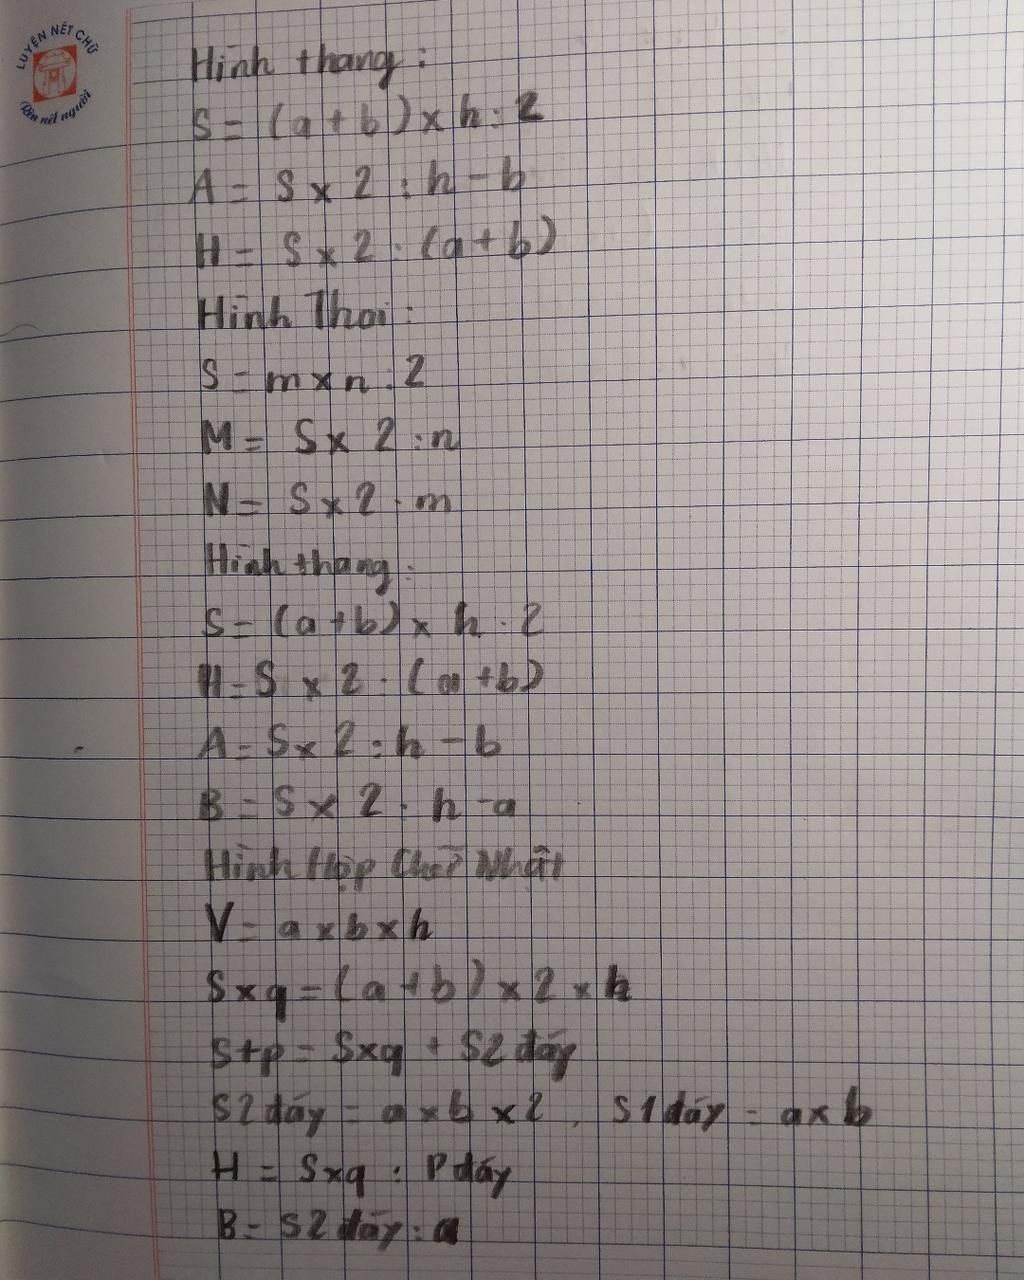 LUYỆN NÉT CHỮ
Rèn nết người
Hình thang :
S = (a + b) x h : 2
A = S x 2 : h - b
H = S x 2 : (a + b)
Hình Thoi :
S = m x n : 2
M = S x 2 : n
N = S x 2 : m
Hình thang :
S = (a + b) x h : 2
H = S x 2 : (a + b)
A = S x 2 : h - b
B = S x 2 : h - a
Hình Hộp Chữ Nhật
V = a x b x h
Sxq = (a + b) x 2 x h
Stp = Sxq + S2 đáy
S2 đáy = a x b x 2 , S1 đáy = a x b
H = Sxq : P đáy
B = S2 đáy : a